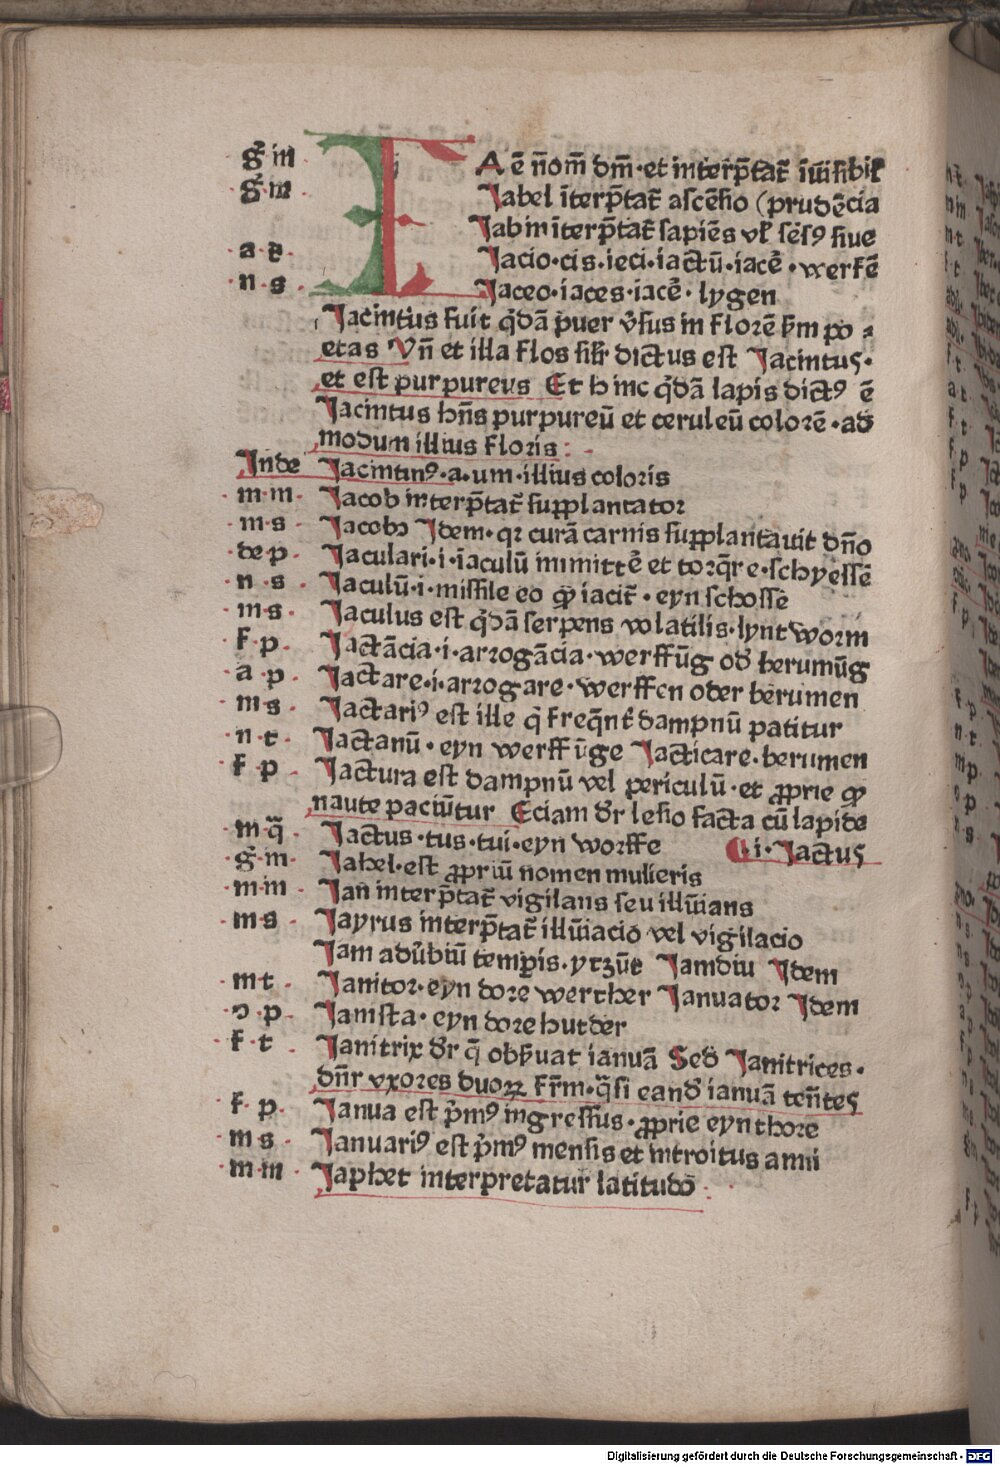 g̃ m I A ē nom̄ dm̄·et interp̄tat᷑ īuisibil᷑
g̃ m Jabel īterp̄tat᷑ ascēsio (prudēcia
Jabin īterp̄tat᷑ sapiēs vl᷑ sēsꝰ siue
·a·t· Jacio·cis·ieci·iactū·iacē·werfē
·n·s· Jaceo·iaces·iacē·lygen
Jacintus fuit q̇dā puer v̓sus in florē s̄m po⸗
etas Vn̄ et illa flos silr̄ dictus est Jacintus·
et est purpureus Et hinc q̇dā lapis dictꝰ ē
Jacintus hn̄s purpureū et ceruleū colorē·ad
modum illius floris:
Inde Jacintinꝰ·a·um·illius coloris
·m·m· Jacob interp̄tat᷑ supplantator
·m·s· Jacobꝰ Jdem·qꝛ curā carnis supplantauit dn̄o
·de·p· Jaculari·i·iaculū inmittē et torq̄re·schyessē
·n·s· Jaculū·i·missile eo ꝙ iacit᷑·eyn schosse
·m·s· Jaculus est q̇dā serpens volatilis·lyntworm
·f·p· Jactācia·i·arrogācia·werffūg od̓ berumūg
·a·p· Jactare·i·arrogare·werffen oder berumen
·m·s· Jactariꝰ est ille q̇ freq̄nt᷑ dampnū patitur
·n·t· Jactanū·eyn werffūge Jacticare·berumen
·f·p Jactura est dampnū vel periculū·et ꝓprie ꝙ
naute paciūtur Eciam dr̄ lesio facta cū lapide
·m·q̄· Jactus·tus·tui·eyn worffe ·i·Jactus
·g̃·m· Jahel·est ꝓpriū nomen mulieris
·m·m· Jan interp̄tat᷑ vigilans seu illūians
·m·s· Jayrus interp̄tat᷑ illūiacio vel vigilacio
Jam adūbiū temp̄is·yrzūt Jamdiu Jdem
·m·t· Janitor·eyn dore werther Januator Jdem
·ɔ·p· Janista·eyn dore hutder
·f·t· Janitrix dr̄ q̄ obs̓uat ianuā Sed Janitrices·
dn̄r vxores duoꝝ fr̄m·q̄si eand̓ ianuā ten̄tes
·f·p· Janua est p̄mꝰ ingressus·ꝓprie eyn thore
·m·s· Januariꝰ est p̄mꝰ mensis et introitus anni
·m·m· Japhet interpretatur latitudo
Digitalisierung gefördert durch die Deutsche Forschungsgemeinschaft - DFG